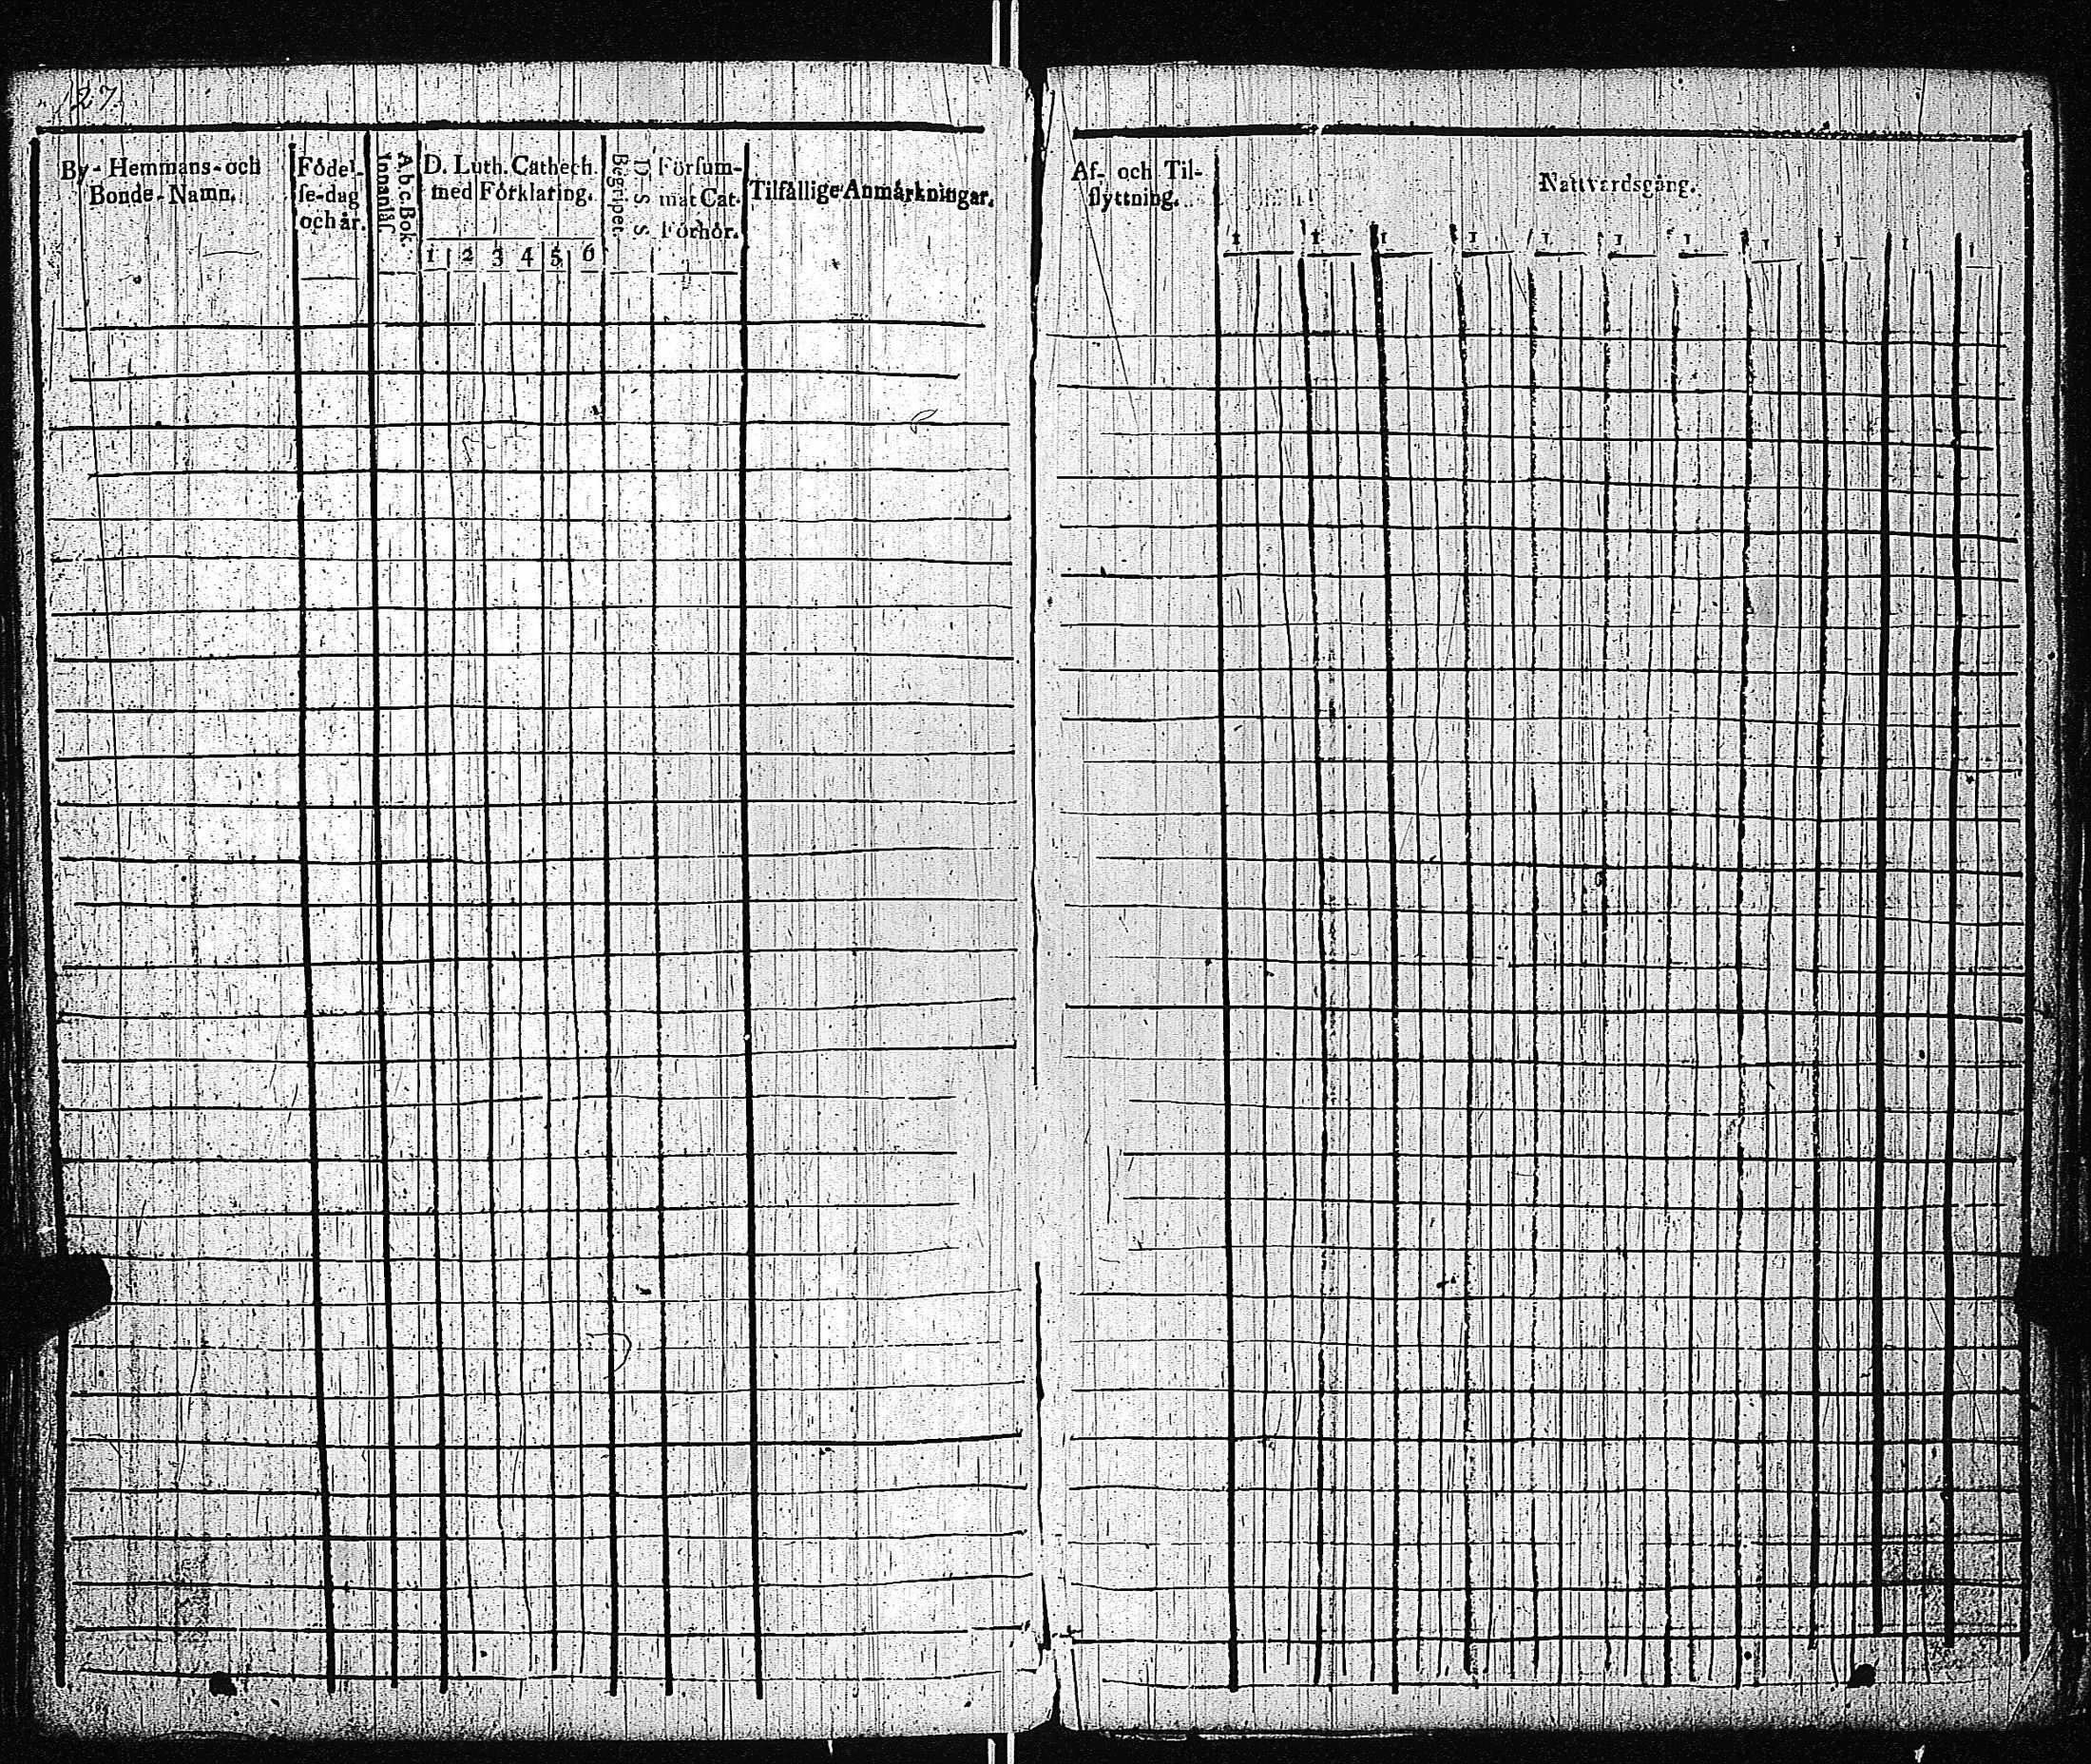 127.
By- Hemmans- och
Bonde-Namn.
Födel-
ſe-dag
och år.
A.b.c.Bok.
Innanläſ
D. Luth. Cathech.
med Förklaring.
1 2 3 4 5 6
D. S. S.
Begripet.
Förſum-
mat Cat.
Förhör.
Tilfällige Anmärkningar.
Af- och Til-
flyttning.
Nattvardsgång.
1 1 1 1 1 1 1 1 1 1 1